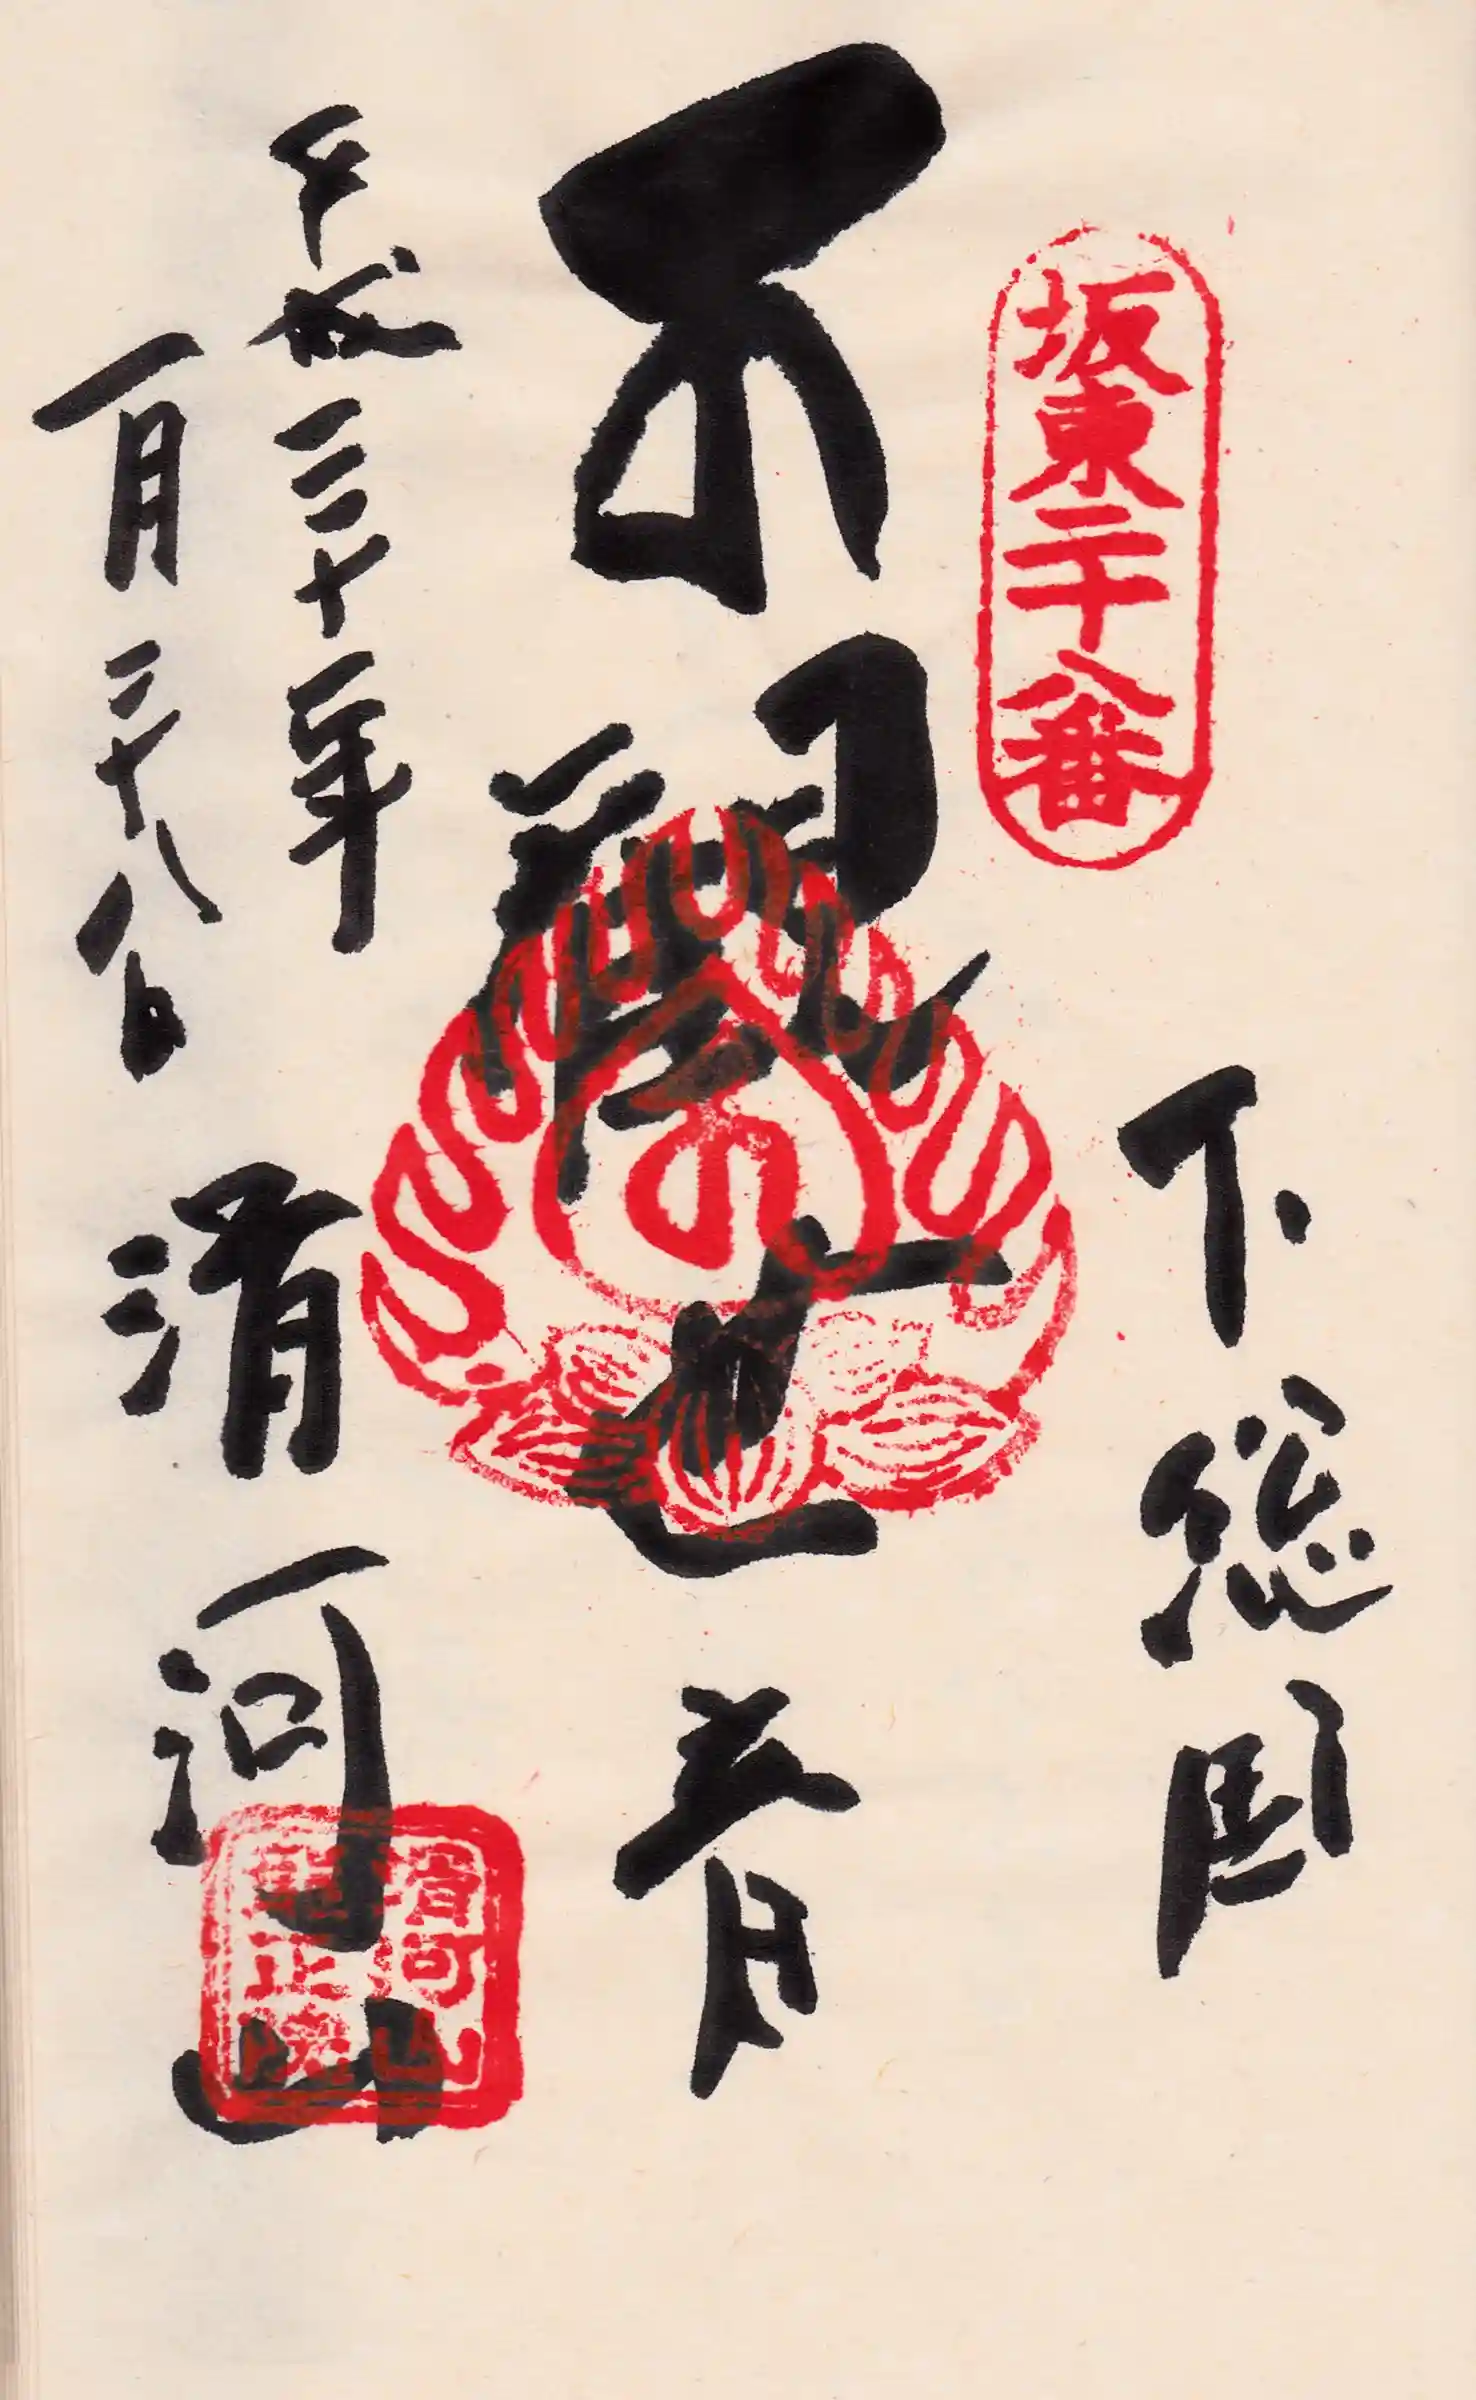 坂東二十八番
下総国
𑖎 観世音
平成三十一年
一月二十八日
滑河山
滑河山
龍正院